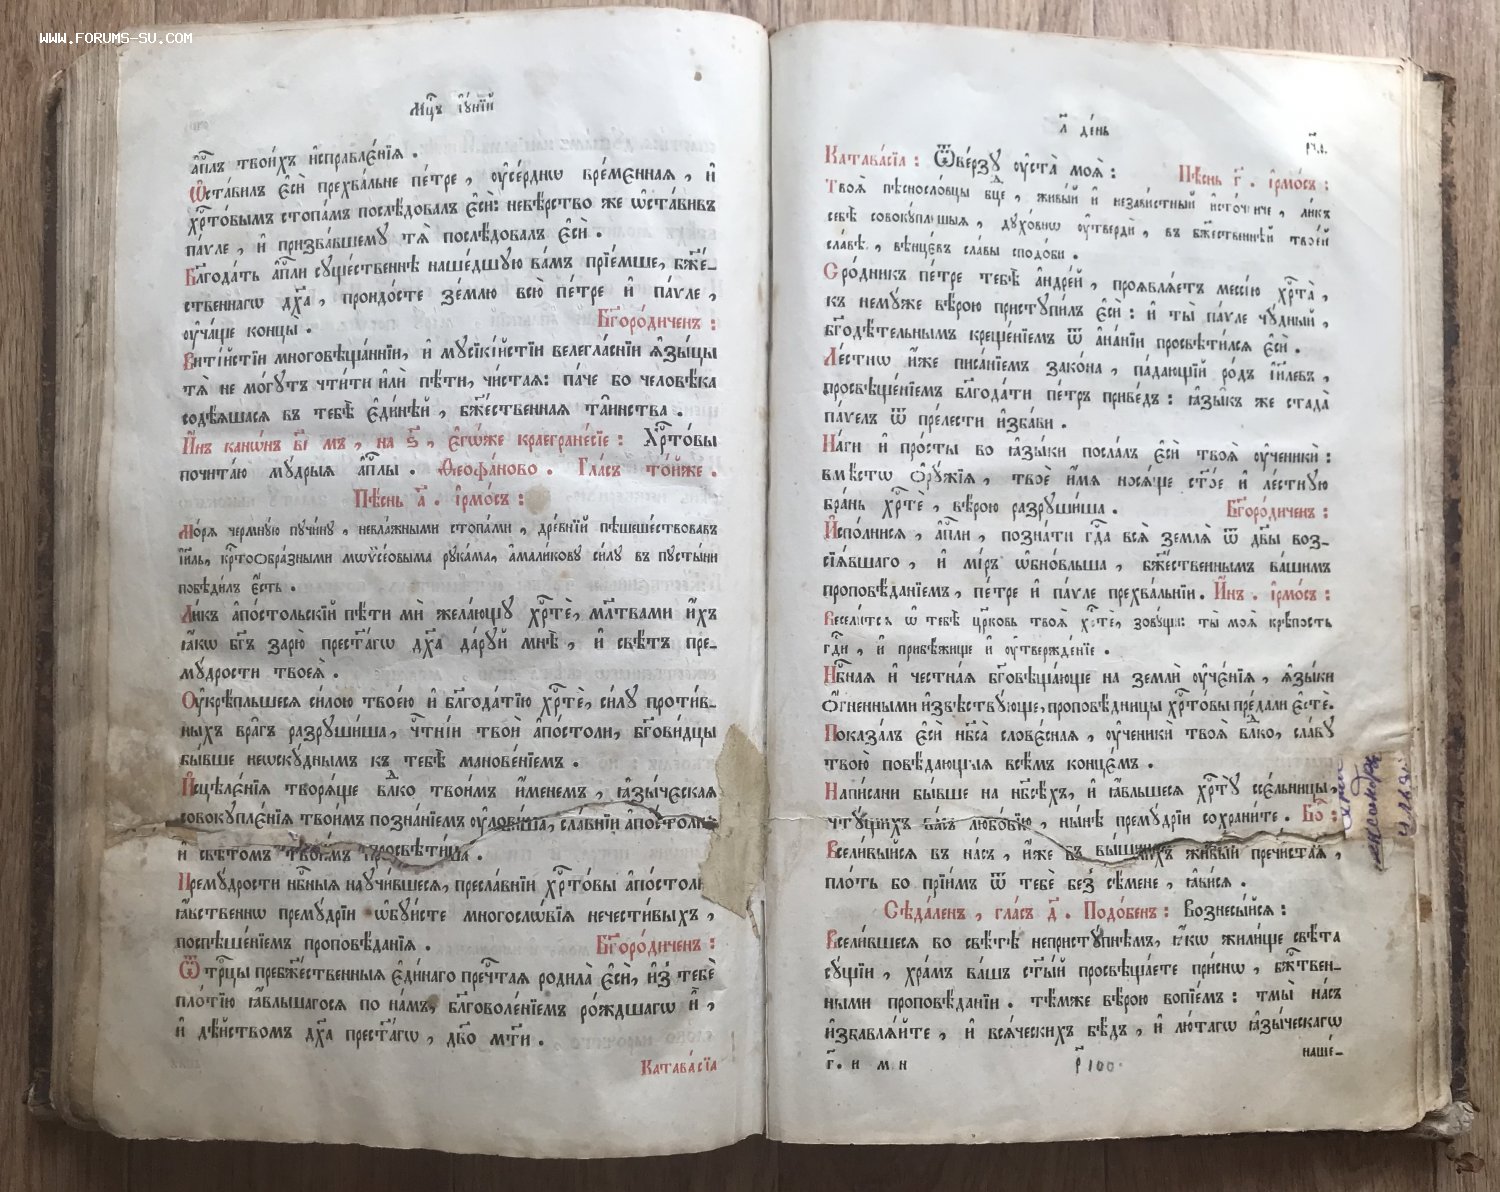 WWW.FORUMS-SU.COM
Мц҃ъ і҆ꙋ́нїй
а҆пⷭ҇лъ твои́хъ и҆справле́нїѧ .
Ѡ҆ста́вилъ є҆сѝ прехва́льне пе́тре , ᲂу҆се́рднѡ вре́менная , и҆
хрⷭ҇то́вымъ стопа́мъ послѣ́довалъ є҆сѝ: невѣ́рство же ѡ҆ста́вивъ
па́ѵле , и҆ призва́вшемꙋ тѧ̀ послѣ́довалъ є҆сѝ .
Бл҃года́ть а҆пⷭ҇ли сꙋще́ственнѣ наше́дшꙋю ва́мъ прїе́мше, бж҃е́-
ственнагѡ дх҃а , проидо́сте зе́млю всю̀ пе́тре и҆ па́ѵле ,
ᲂу҆ча́ще концы̀ .
Бг҃оро́диченъ :
Вити́йстїи многовѣща́ннїи, и҆ мꙋсїкі́йстїи велегла́снїи ꙗ҆зы́цы
тѧ̀ не мо́гꙋтъ чти́ти и҆лѝ пѣ́ти, чи́стая: па́че бо человѣ́ка
содѣ́яшася въ тебѣ̀ є҆ди́нѣй , бж҃е́ственная та̑инства .
И҆́нъ кано́нъ в҃і мъ , на ѕ҃ , є҆гѡ́же краегране́сїе : Хрⷭ҇то́вы
почита́ю мꙋ́дрыѧ а҆пⷭ҇лы . Ѳеофа́ново . Гла́съ то́йже .
Пѣ́снь а҃ . і҆рмо́съ :
Мо́рѧ чермнꙋ́ю пꙋчи́нꙋ , невла́жными стопа́ми , дре́внїй пѣшеше́ствовавъ
і҆и҃ль, крⷭ҇тоѻбра́зными мѡѷсе́овыма рꙋка́ма, а҆мали́ковꙋ си́лꙋ въ пꙋсты́ни
побѣди́лъ є҆́сть .
Ли́къ а҆по́стольскїй пѣ́ти мѝ жела́ющꙋ хрⷭ҇тѐ, мл҃твами и҆́хъ
ꙗ҆́кѡ бг҃ъ зарю̀ прест҃а́гѡ дх҃а да́рꙋй мнѣ̀ , и҆ свѣ́тъ пре-
мꙋ́дрости твоеѧ̀ .
Оу҆крѣ́пльшеся си́лою твое́ю и҆ бл҃года́тїю хрⷭ҇тѐ, си́лꙋ проти́в-
ныхъ вра̑гъ разрꙋши́ша, чⷭ҇тні́и твоѝ а҆по́столи, бг҃ови́дцы
бы́вше неѡскꙋ́днымъ къ тебѣ̀ манове́нїемъ .
И҆сцѣле́нїѧ творѧ́ще вл҃ко твои́мъ и҆́менемъ , ꙗ҆зы́ческая
совокꙋпле́нїѧ твои́мъ позна́нїемъ ᲂу҆лови́ша, сла́внїи а҆по́столи
и҆ свѣ́томъ твои́мъ просвѣти́ша .
Премꙋ́дрости нбⷭ҇ныѧ наꙋчи́вшеся, пресла́внїи хрⷭ҇то́вы а҆по́столи
ꙗ҆́вственнѡ премꙋ́дрїи ѡ҆бꙋи́сте многосло́вїѧ нечести́выхъ ,
поспѣше́нїемъ проповѣ́данїѧ .
Бг҃оро́диченъ :
Ѿ трⷪ҇цы пребж҃е́ственныѧ є҆ди́наго пречⷭ҇тая родила̀ є҆сѝ, и҆з̾ тебє̀
пло́тїю ꙗ҆́вльшагося по на́мъ, бл҃говоле́нїемъ ро́ждшагѡ и҆̀ ,
и҆ дѣ́йствомъ дх҃а прест҃а́гѡ , дв҃о мт҃и .
Катава́сїа
л҃ де́нь
Катава́сїа : Ѿве́рзꙋ ᲂу҆ста̀ моѧ̀ :
Пѣ́снь г҃ . і҆рмо́съ :
Твоѧ̀ пѣсносло́вцы бц҃е , живы́й и҆ незави́стный и҆сто́чниче , ли́къ
себѣ̀ совокꙋ́пльшыѧ , дꙋхо́внѡ ᲂу҆твердѝ , въ бж҃е́ственнѣй твое́й
сла́вѣ , вѣнце́въ сла́вы сподо́би .
Сро́дникъ пе́тре тебѣ̀ а҆ндре́й , проявлѧ́етъ мессі́ю хрⷭ҇та̀ ,
къ немꙋ́же вѣ́рою пристꙋпи́лъ є҆сѝ : и҆ ты̀ па́ѵле чꙋ́дный ,
бг҃одѣ́тельнымъ креще́нїемъ ѿ а҆на́нїи просвѣти́лся є҆сѝ .
Ле́стнѡ и҆́же писа́нїемъ зако́на , па́дающїй ро́дъ і҆и҃левъ ,
просвѣще́нїемъ бл҃года́ти пе́тръ приве́дъ : ꙗ҆зы́къ же стада̀
па́ѵелъ ѿ пре́лести и҆зба́ви .
На́ги и҆ про́сты во ꙗ҆зы́ки посла́лъ є҆сѝ твоѧ̀ ᲂу҆ченикѝ :
вмѣ́стѡ ѻ҆рꙋ́жїѧ , твоѐ и҆́мѧ носѧ́ще ст҃о́е и҆ ле́стнꙋю
бра́нь хрⷭ҇тѐ , вѣ́рою разрꙋши́ша .
Бг҃оро́диченъ :
И҆спо́лнися , а҆пⷭ҇ли , позна́ти гдⷭ҇а всѧ̀ землѧ̀ ѿ дв҃ы воз-
сїѧ́вшаго , и҆ мі́ръ ѡ҆бнови́вша , бж҃е́ственнымъ ва́шимъ
проповѣ́данїемъ , пе́тре и҆ па́ѵле прехва́льнїи . И҆́нъ . і҆рмо́съ :
Весели́тся ѡ҆ тебѣ̀ цр҃ковь твоѧ̀ хрⷭ҇тѐ, зовꙋ́щи: ты̀ моѧ̀ крѣ́пость
гдⷭ҇и , и҆ прибѣ́жище и҆ ᲂу҆твержде́нїе .
Нбⷭ҇ная и҆ честна́ѧ бг҃овѣща́юще на землѝ ᲂу҆че́нїѧ , ꙗ҆зы́ки
ѻ҆́гненными и҆звѣ́ствꙋюще, проповѣ́дницы хрⷭ҇то́вы преда́ли є҆стѐ.
Показа́лъ є҆сѝ нб҃са̀ слове́сная , ᲂу҆ченикѝ твоѧ̀ вл҃ко, сла́вꙋ
твою̀ повѣ́дающыѧ всѣ́мъ конце́мъ .
Напи́сани бы́вше на нб҃сѣ́хъ, и҆ ꙗ҆́вльшеся хрⷭ҇тꙋ̀ сѣ́льницы,
чтꙋ́щихъ ва́съ любо́вїю , ны́нѣ премꙋ́дрїи сохрани́те . Бо҃ :
Всели́выйся въ на́съ , и҆́же въ вы́шнихъ живы́й пречи́стая ,
пло́ть бо прїи́мъ ѿ тебє̀ без̾ сѣ́мене , ꙗ҆ви́ся .
Сѣда́ленъ , гла́съ д҃ . Подо́бенъ : Вознесы́йся :
Всели́вшеся во свѣ́тѣ непристꙋ́пнѣмъ, ꙗ҆́кѡ жили́ще свѣ́та
сꙋ́щїи , хра́мъ ва́шъ ст҃ы́й просвѣща́ете при́снѡ , бжⷭ҇твен-
ными проповѣ́данїи . тѣ́мже вѣ́рою вопїе́мъ : тмы̀ на́съ
и҆збавлѧ́йте , и҆ всѧ́ческихъ бѣ́дъ , и҆ лю́тагѡ ꙗ҆зы́ческагѡ
наше́-
г҃. и м н
р҃ 100.